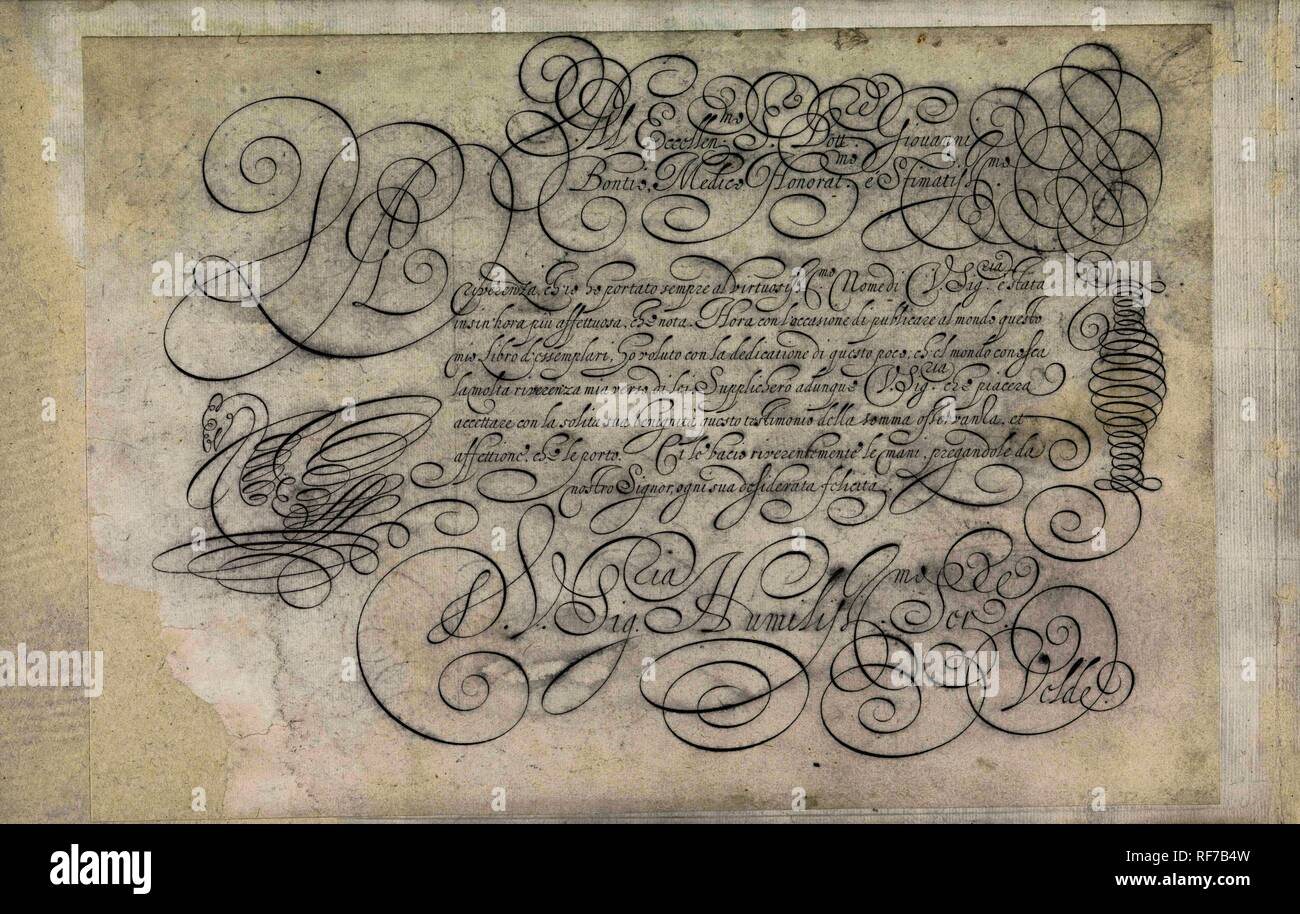 All' Eccellen.mo S. Dott. Giovanni
Bontio, Medico Honorat.mo e Stimatiss.mo
La Riverenza, ch'io ho portato sempre al virtuosiss.mo Nome di V. Sig.ria, è stata
insin'hora più affettuosa, che nota. Hora con l'occasione di publicare al mondo questo
mio Libro d'essemplari, ho voluto con la dedicatione di questo poco, ch'el mondo conosca
la molta riverenza mia verso di lei. Supplicherò adunque V. Sig.ria che piacera
accettare con la solita sua benignità questo testimonio della somma osservanza, et
affettione, che le porto. Et le bacio riverentemente le mani, pregandole da
nostro Signor, ogni sua desiderata felicita.
D. V. Sig.ria Humiliss.mo Ser.re
Velde.
alamy
Image ID: RF7B4W
www.alamy.com